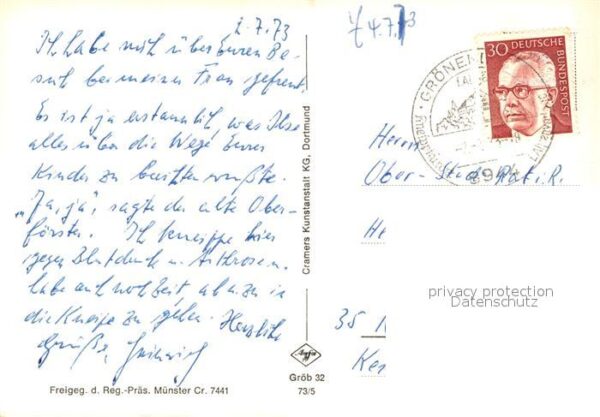 2.7.73
Ich habe mich über Euren Be-
such bei meiner Frau gefreut.
Es ist ja erstaunlich, was Ilse
alles über die Wege Eurer
Kinder zu berichten wußte.
"Ja, ja", sagte der alte Ober-
förster. Ich kneippe hier
gegen Blutdruck u. Arthrose u.
habe auch noch Zeit ab u. zu in
die Kneipe zu gehen. Herzliche
Grüße,
Freigeg. d. Reg.-Präs. Münster Cr. 7441
Cramers Kunstanstalt KG, Dortmund
Gröb 32
73/5
4.7.73
GRÖNEN
30 DEUTSCHE BUNDESPOST
8974
Herrn
Ober-Stud. Rat i. R.
He
privacy protection
Datenschutz
35 K